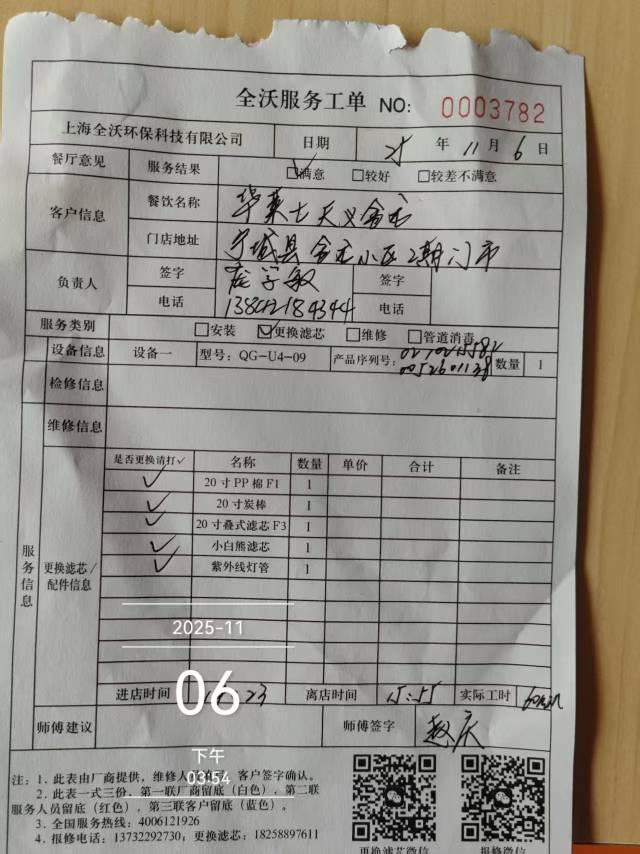 全沃服务工单 NO: 0003782
上海全沃环保科技有限公司 日期 25 年 11 月 6 日
餐厅意见 服务结果 ☑满意 □较好 □较差不满意
客户信息 餐饮名称 华莱士天义
门店地址 宁城县 小区2期门市
负责人 签字 签字
电话 电话
服务类别 □安装 ☑更换滤芯 □维修 □管道消毒
设备信息 设备一 型号：QG-U4-09 产品序列号： 数量 1
检修信息
维修信息
服务信息
更换滤芯/配件信息
是否更换请打✓ 名称 数量 单价 合计 备注
✓ 20寸PP棉F1 1
✓ 20寸炭棒 1
✓ 20寸叠式滤芯F3 1
✓ 小白熊滤芯 1
✓ 紫外线灯管 1
进店时间 23 离店时间 15:55 实际工时
师傅建议 师傅签字 赵庆
2025-11
06
下午
03:54
注：1. 此表由厂商提供，维修人 ，客户签字确认。
2. 此表一式三份，第一联厂商留底（白色），第二联
服务人员留底（红色），第三联客户留底（蓝色）。
3. 全国服务热线：4006121926
4. 报修电话：13732292730；更换滤芯：18258897611
更换滤芯微信 报修微信